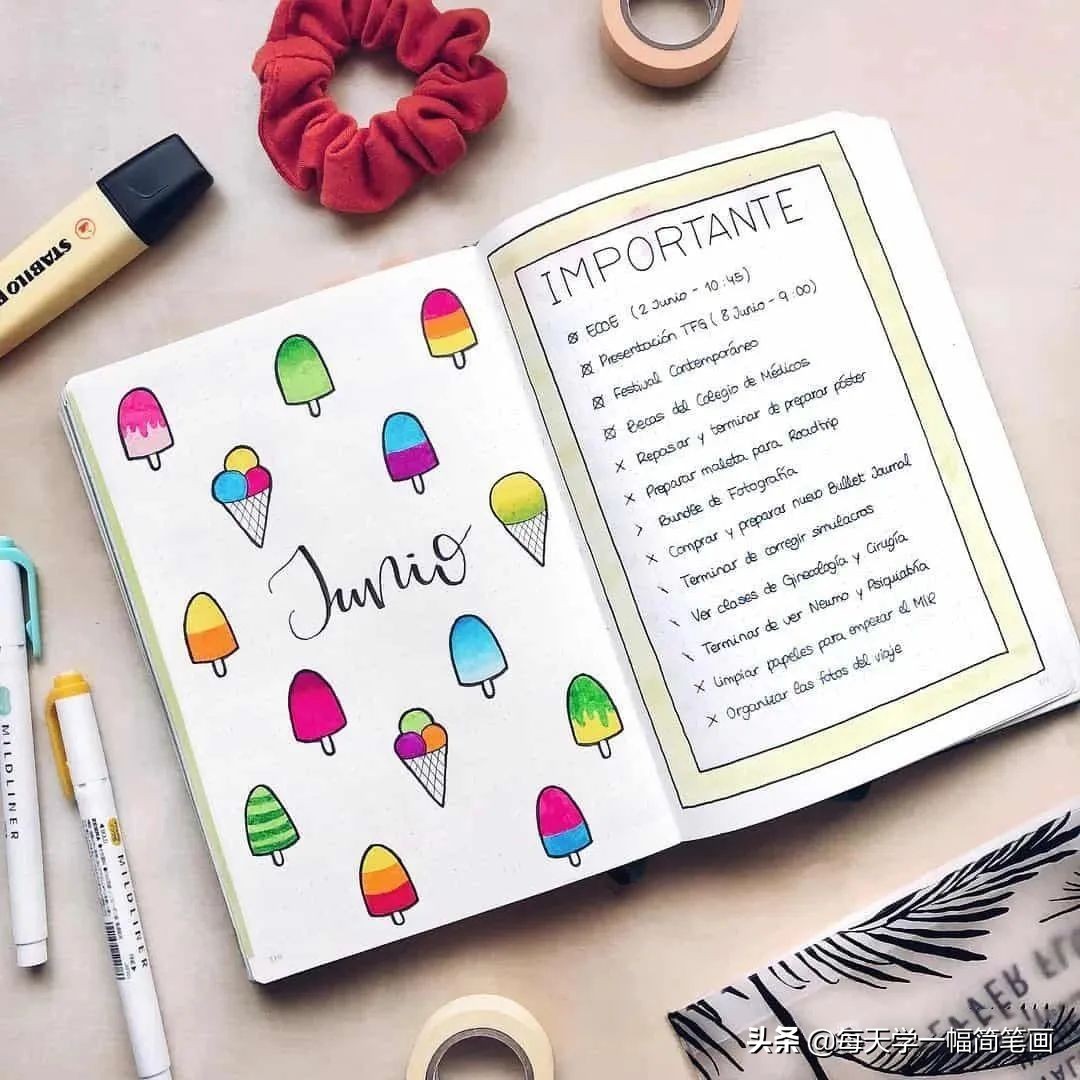 STABILO
Junio
IMPORTANTE
ECOE (2 Junio - 10:45)
Presentación TFG (8 Junio - 9:00)
Festival Contemporáneo
Becas del Colegio de Médicos
x Repasar y terminar de preparar póster
x Preparar maleta para Roadtrip
> Bundle de Fotografía
x Comprar y preparar nuevo Bullet Journal
\ Terminar de corregir simulacros
\ Ver clases de Ginecología y Cirugía
\ Terminar de ver Neumo y Psiquiatría
x Limpiar papeles para empezar el MIR
x Organizar las fotos del viaje
MILDLINER
MILDLINER
头条 @每天学一幅简笔画